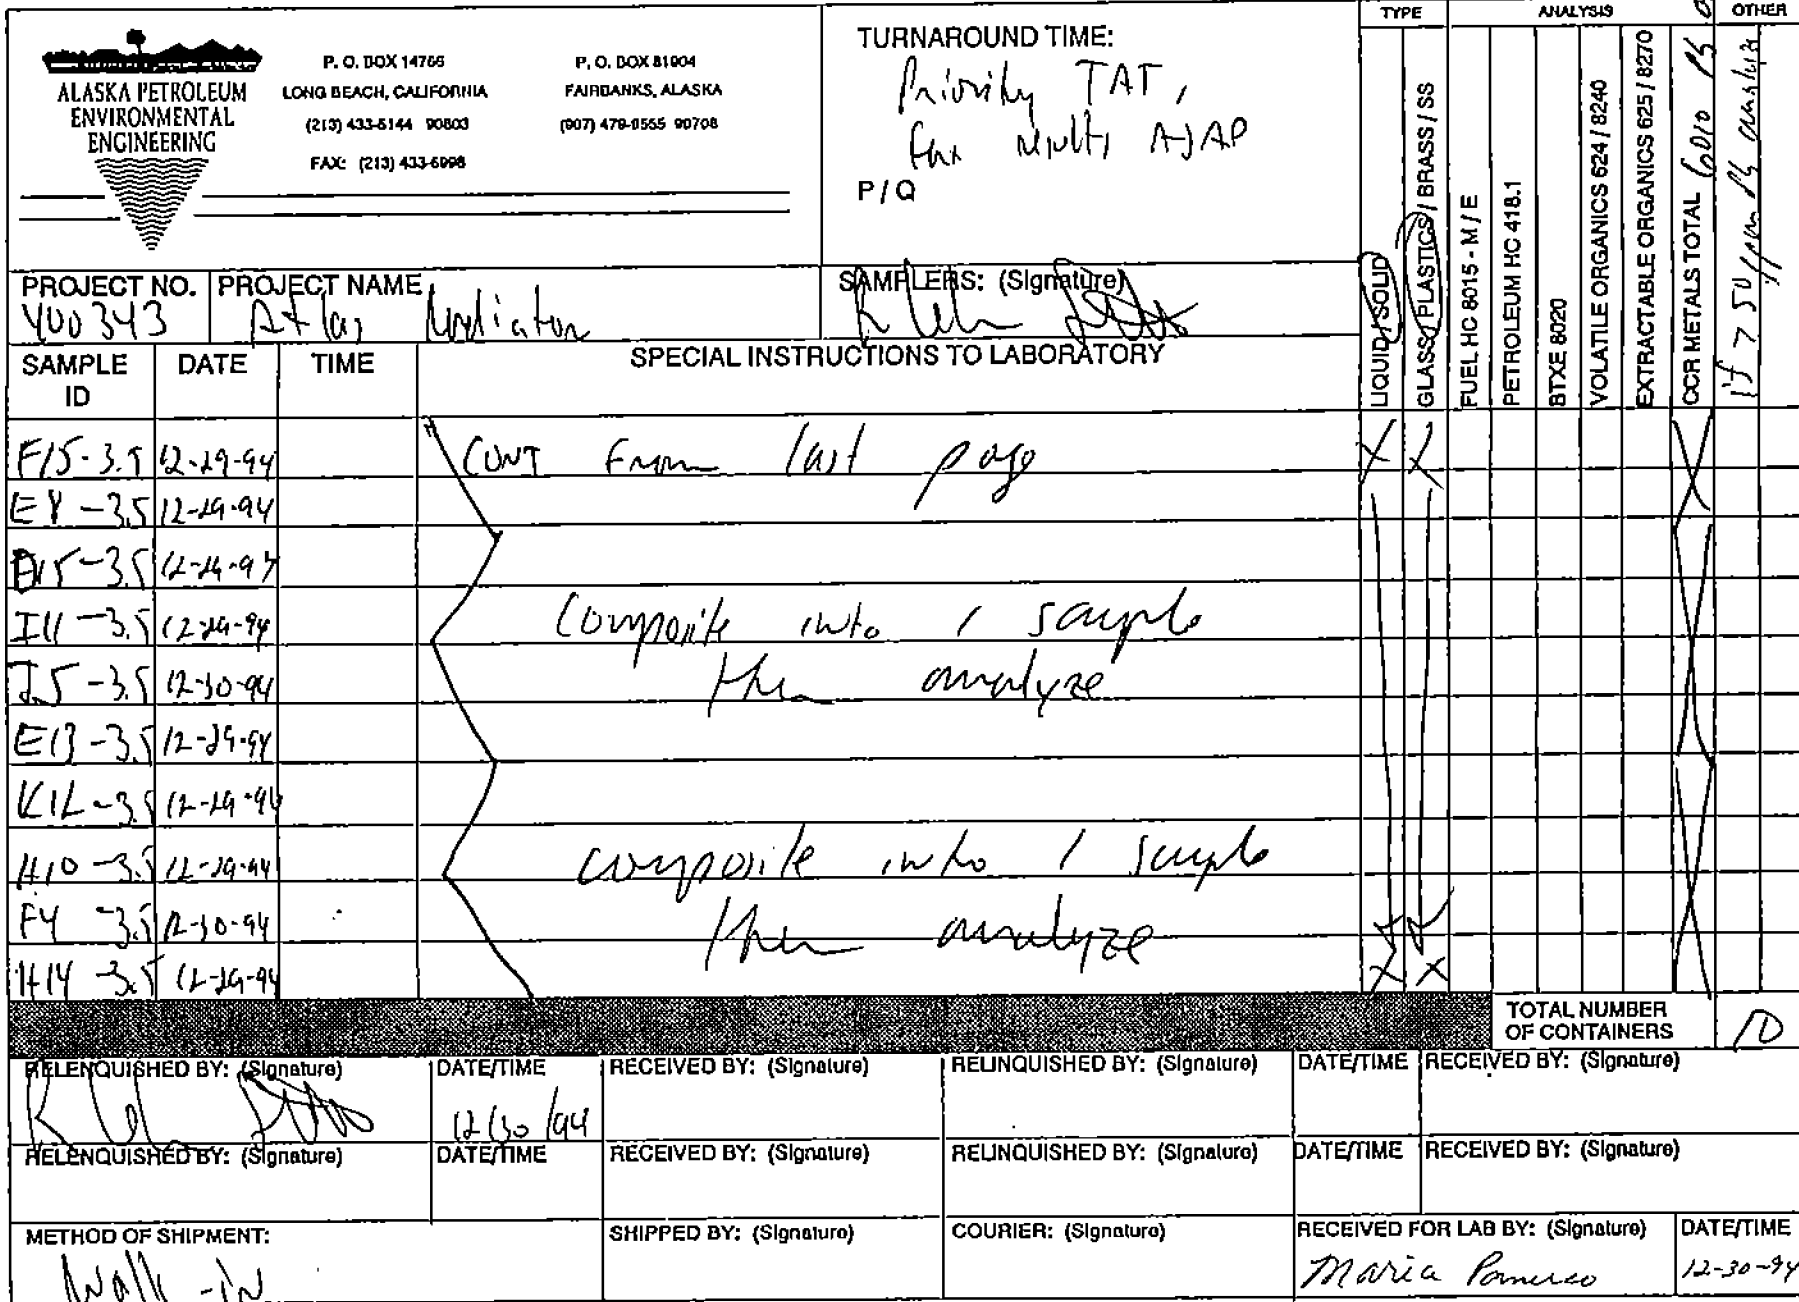 ALASKA PETROLEUM
ENVIRONMENTAL
ENGINEERING
P. O. BOX 14766
LONG BEACH, CALIFORNIA
(213) 433-5144 90803
FAX: (213) 433-6998
P. O. BOX 81904
FAIRBANKS, ALASKA
(907) 479-0555 90708
TURNAROUND TIME:
Priority TAT,
fax results ASAP
P / Q
TYPE
ANALYSIS
OTHER
LIQUID / SOLID
GLASS / PLASTICS / BRASS / SS
FUEL HC 8015 - M / E
PETROLEUM HC 418.1
BTXE 8020
VOLATILE ORGANICS 624 / 8240
EXTRACTABLE ORGANICS 625 / 8270
CCR METALS TOTAL 6010 Pb
if > 50 ppm Pb
PROJECT NO.
PROJECT NAME
400343
Atlas Radiator
SAMPLERS: (Signature)
SAMPLE ID
DATE
TIME
SPECIAL INSTRUCTIONS TO LABORATORY
F15-3.5 12-29-94 CONT From last page X X
E8-3.5 12-29-94
D15-3.5 12-29-94
I11-3.5 12-29-94 Composite into 1 sample
J5-3.5 12-30-94 then analyze
E13-3.5 12-29-94
K12-3.5 12-29-94
H10-3.5 12-29-94 composite into 1 sample
F4-3.5 12-30-94 then analyze
H14-3.5 12-29-94 X X
TOTAL NUMBER
OF CONTAINERS
10
RELENQUISHED BY: (Signature)
DATE/TIME
12/30/94
RECEIVED BY: (Signature)
RELINQUISHED BY: (Signature)
DATE/TIME
RECEIVED BY: (Signature)
RELENQUISHED BY: (Signature)
DATE/TIME
RECEIVED BY: (Signature)
RELINQUISHED BY: (Signature)
DATE/TIME
RECEIVED BY: (Signature)
METHOD OF SHIPMENT:
Walk-in
SHIPPED BY: (Signature)
COURIER: (Signature)
RECEIVED FOR LAB BY: (Signature)
Maria
DATE/TIME
12-30-94